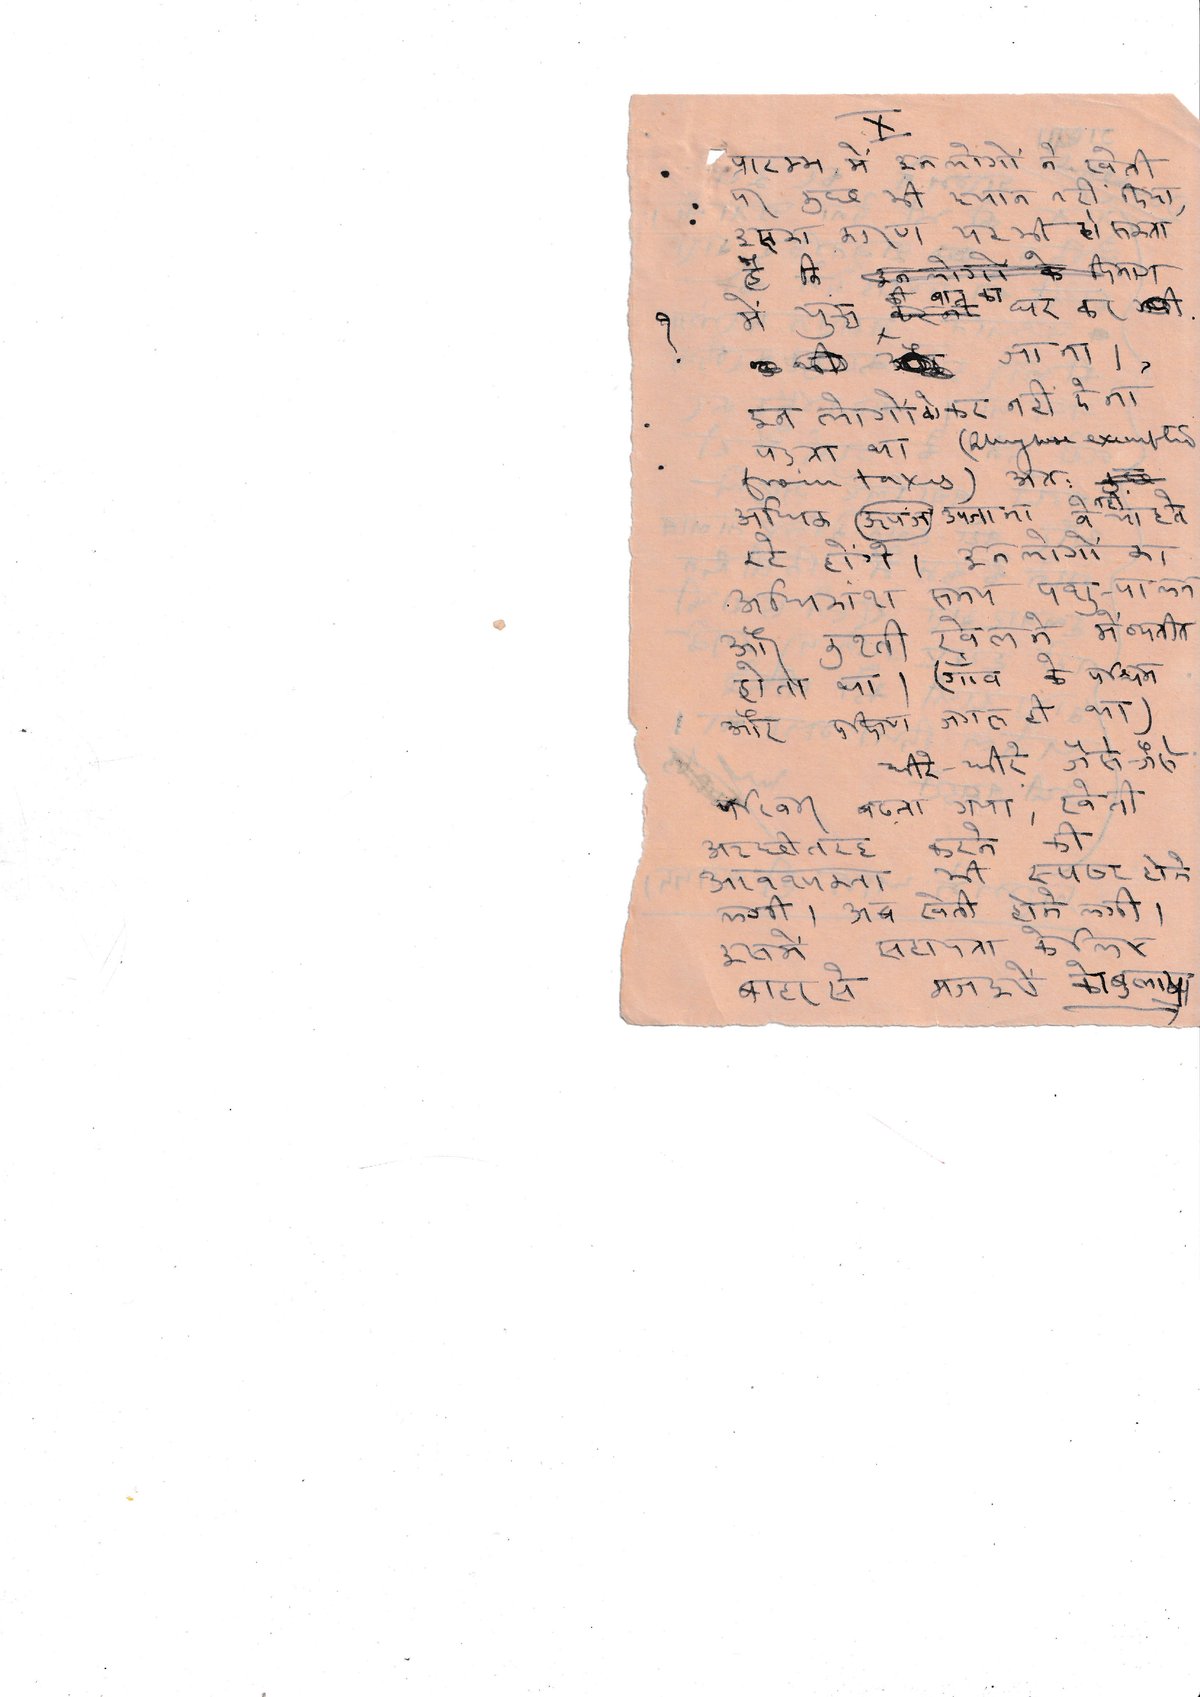 X
प्रारम्भ में इन लोगों ने खेती
पर कुछ भी ध्यान नहीं दिया,
इसका कारण यह भी हो सकता
है कि इन लोगों के दिमाग
में युद्ध की बात का घर कर
जाना।
इन लोगों को कर नहीं देना
पड़ता था (They were exempted
from taxes) अतः
अधिक उपज उपजाना वे नहीं चाहते
रहे होंगे। इन लोगों का
अधिकांश समय पशु-पालन
और कुश्ती खेलने में व्यतीत
होता था। (गाँव के पश्चिम
और दक्षिण जंगल ही था)
धीरे-धीरे जैसे-जैसे
परिवार बढ़ता गया, खेती
अच्छी तरह करने की
आवश्यकता भी स्पष्ट होने
लगी। अब खेती होने लगी।
इसमें सहायता के लिए
बाहर से मजदूरों को बुलाया